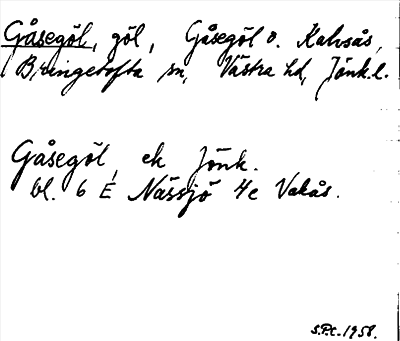 Gåsegöl, göl, Gåsegöl o. Kalvsås,
Bringetofta sn, Västra hd, Jönk.l.
Gåsegöl, ek Jönk.
bl. 6 É Nässjö 4c Vakås.
S.P.C. 1958.